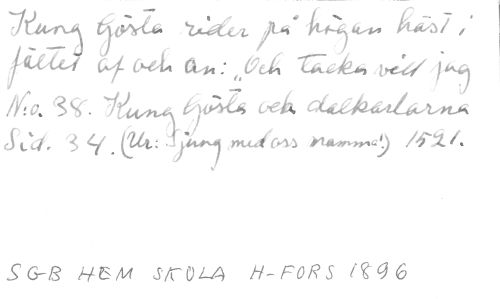 Kung Gösta rider på högan häst i
fältet af och an: "Och tacka vill jag
N:o. 38. Kung Gösta och dalkarlarna
Sid. 34. (Ur: Sjung med oss mamma!) 1521.
SGB HEM SKOLA H-FORS 1896